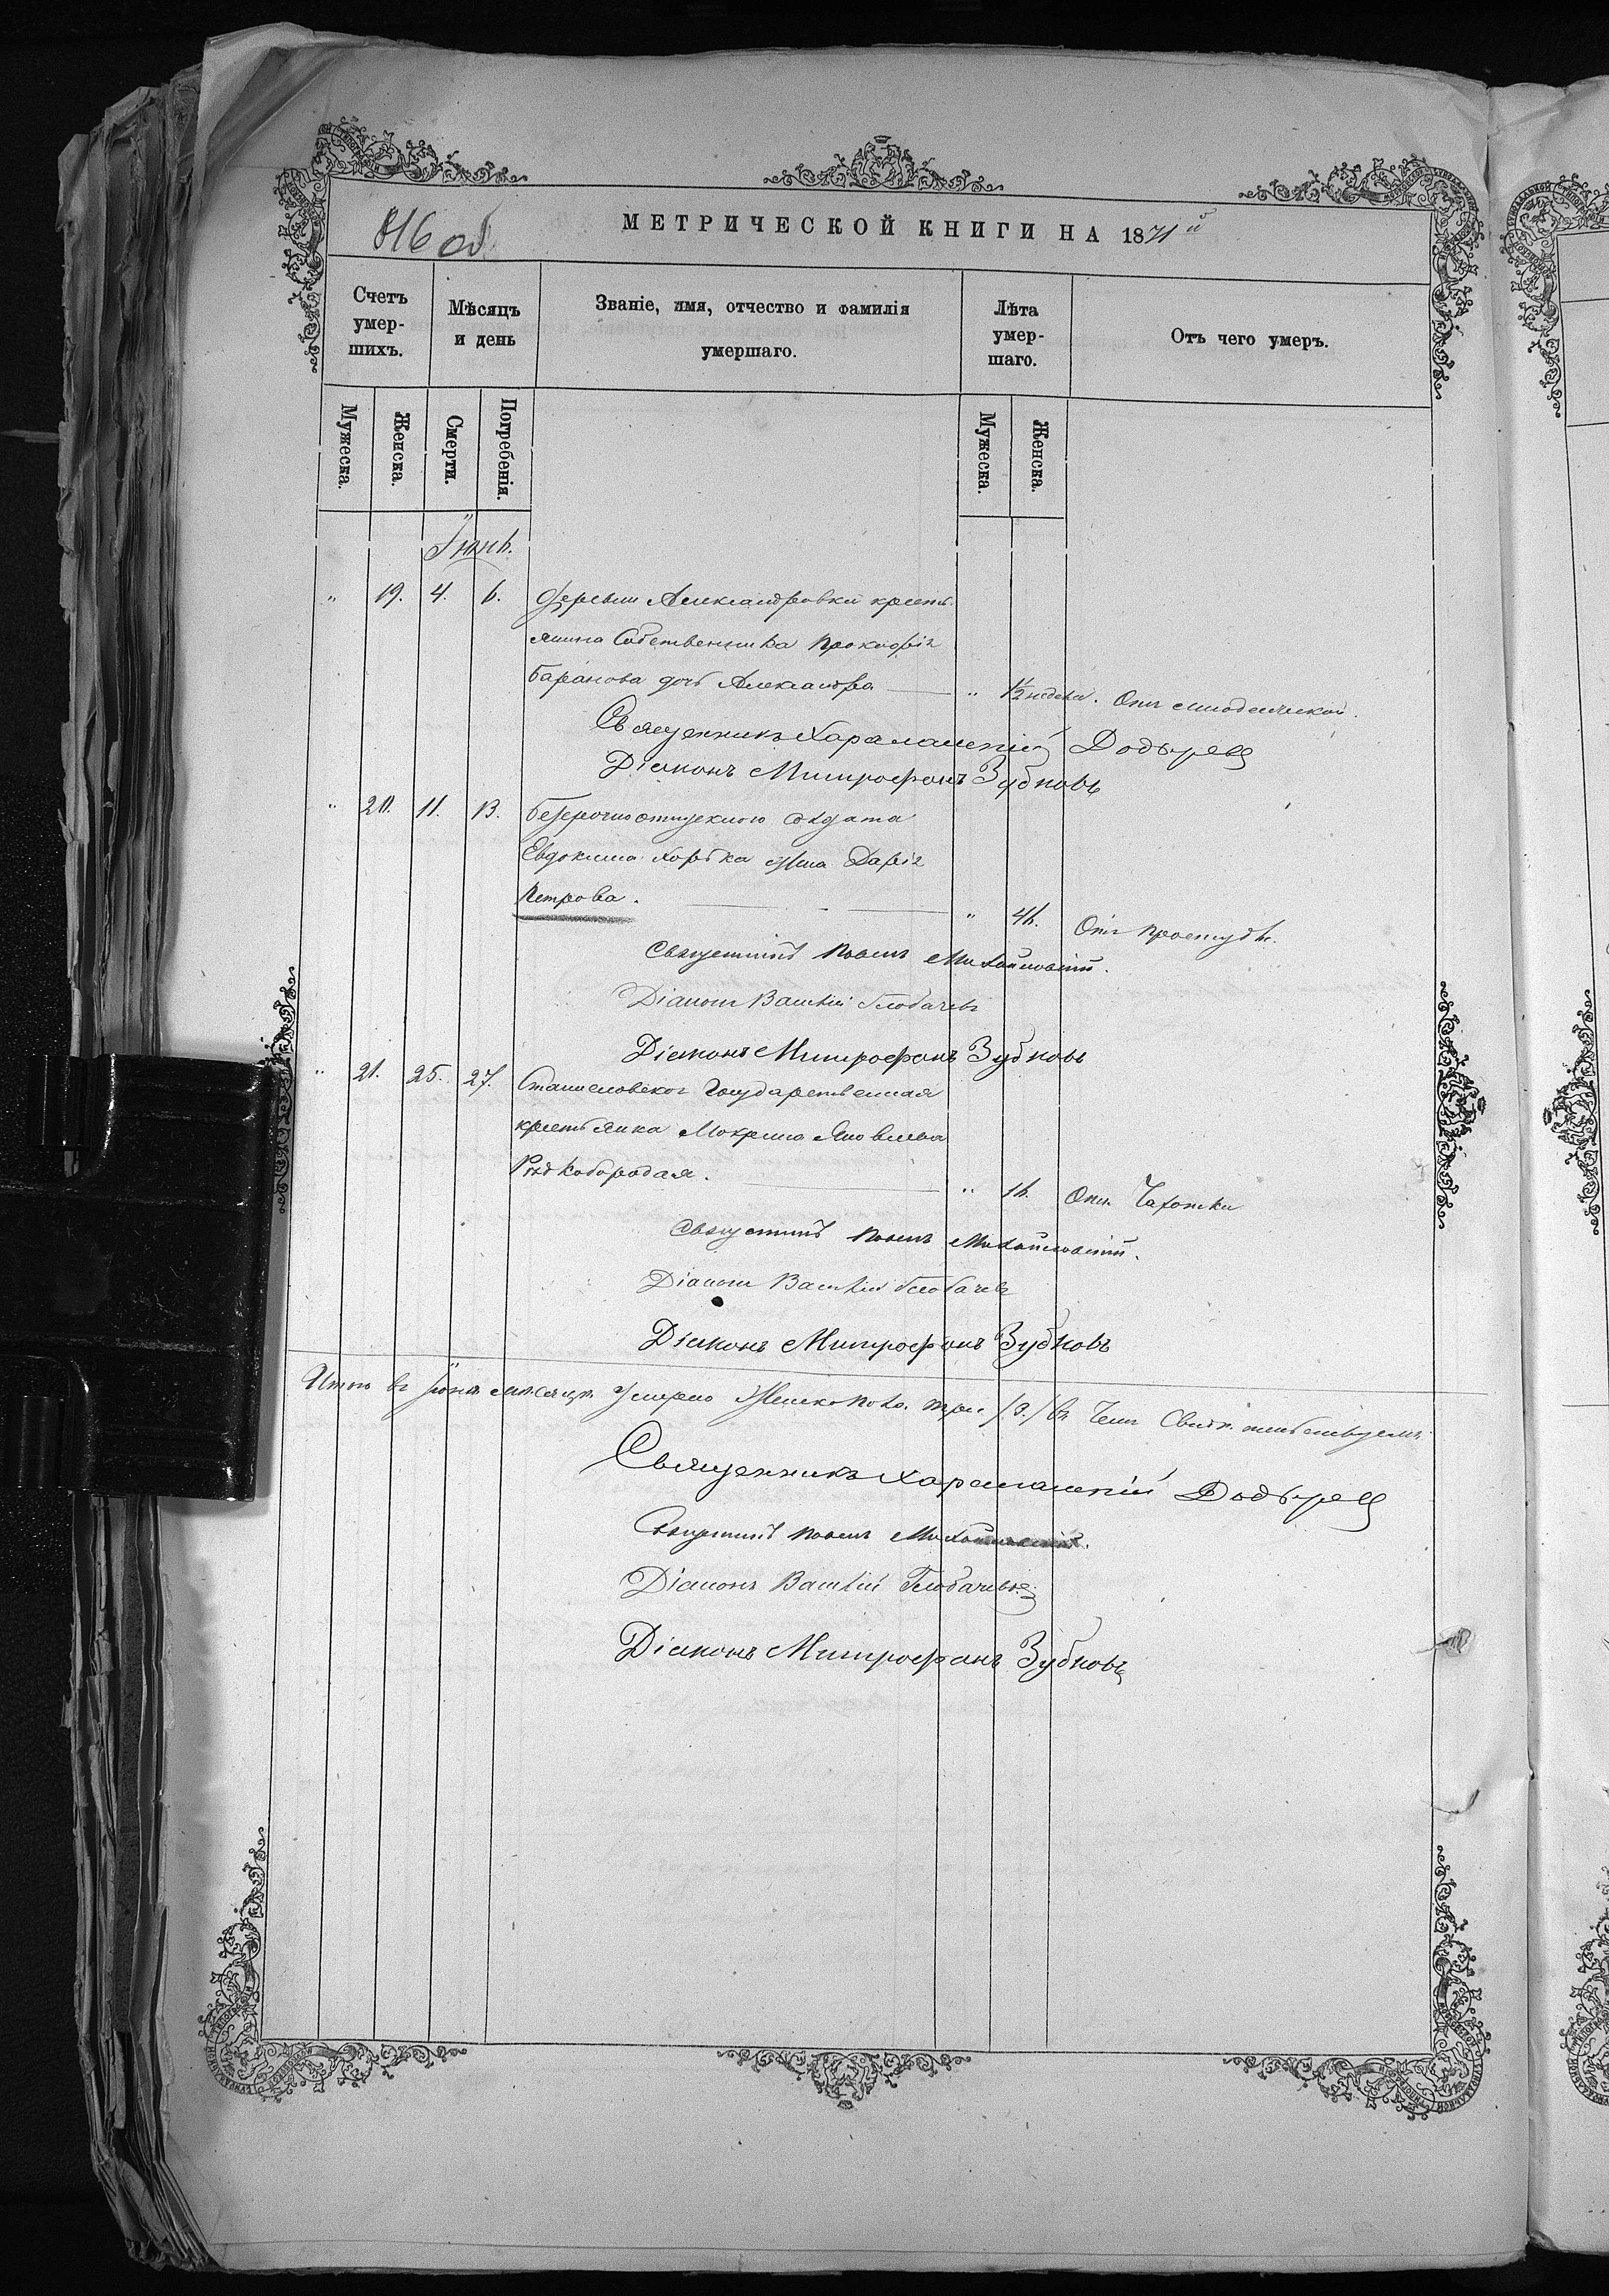 816 об
МЕТРИЧЕСКОЙ КНИГИ НА 1871й
Счетъ умер-шихъ.
Мѣсяцъ и день
Званіе, имя, отчество и фамилія умершаго.
Лѣта умер-шаго.
Отъ чего умеръ.
Мужеска. Женска. Смерти. Погребенія. Мужеска. Женска.
Іюнь.
" 19. 4. 6. Деревни Александровки кресть-
янина Собственника Прокофія
Баранова дочь Александра " 1/2 недели. Отъ младенческой.
Священникъ Харалампій
Діаконъ Митрофанъ Зубковъ
" 20. 11. 13. Безсрочноотпускного солдата
Евдокима жена Дарія
Петрова. " Отъ простуды.
Священникъ Михайловскій.
Діаконъ Василій Глобачевъ
Діаконъ Митрофанъ Зубковъ
" 21. 25. 27. Государственная
крестьянка Яковлева
Рѣдкобородая. " Отъ Чахотки
Священникъ Михайловскій.
Діаконъ Василій Глобачевъ
Діаконъ Митрофанъ Зубковъ
Итого въ Іюнѣ мѣсяцѣ Умерло Женска пола три /3./ въ чемъ Свидѣтельствуемъ:
Священникъ Харалампій
Священникъ Михайловскій.
Діаконъ Василій Глобачевъ
Діаконъ Митрофанъ Зубковъ